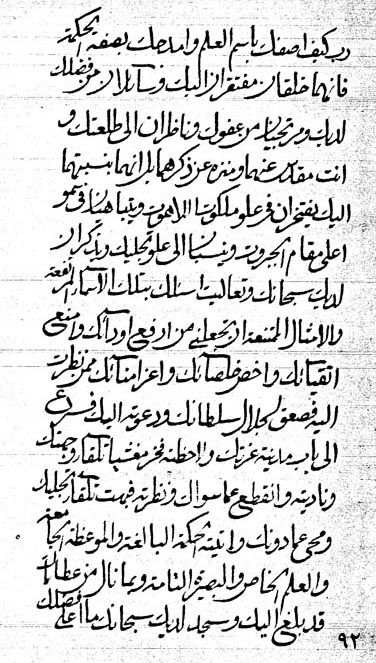 رب كيف اصفك باسم العلم وامدحك بصفة الحكمة
فانهما خلقان مفتقران اليك وسائلان من فضلك
لديك ومرتجيان من عفوك وناظران الى طلعتك و
انت مقدس عنهما ومنزه عن ذكرهما بل انهما بنسبتهما
اليك يفتخران في علو ملكوت اللاهوت ويتباهيان في سمو
اعلى مقام الجبروت وينسبان الى علو تجليك ويذكران
لديك سبحانك وتعاليت اسئلك بتلك الاسماء المرتفعة
والامثال الممتنعة ان تجعلني من ارفع اودائك وامنع
اتقيائك واخص خلصائك واعز امنائك ممن نظرت
اليه فصعق لجلال سلطانك ودعوته اليك فسرع
الى باب مدينة عزتك ولاحظته فخر مغشيا تلقاء وجهتك
وناديته وانقطع عما سواك ونظرته فبهت تلقاء تجليك
ومحى عما دونك واتيته الحكمة البالغة والموعظة الجامعة
والعلم الخاص والبصيرة التامة وبما نال من عطائك
قد بلغ اليك وسجد لديك سبحانك ما اعلى فضلك
٩٢